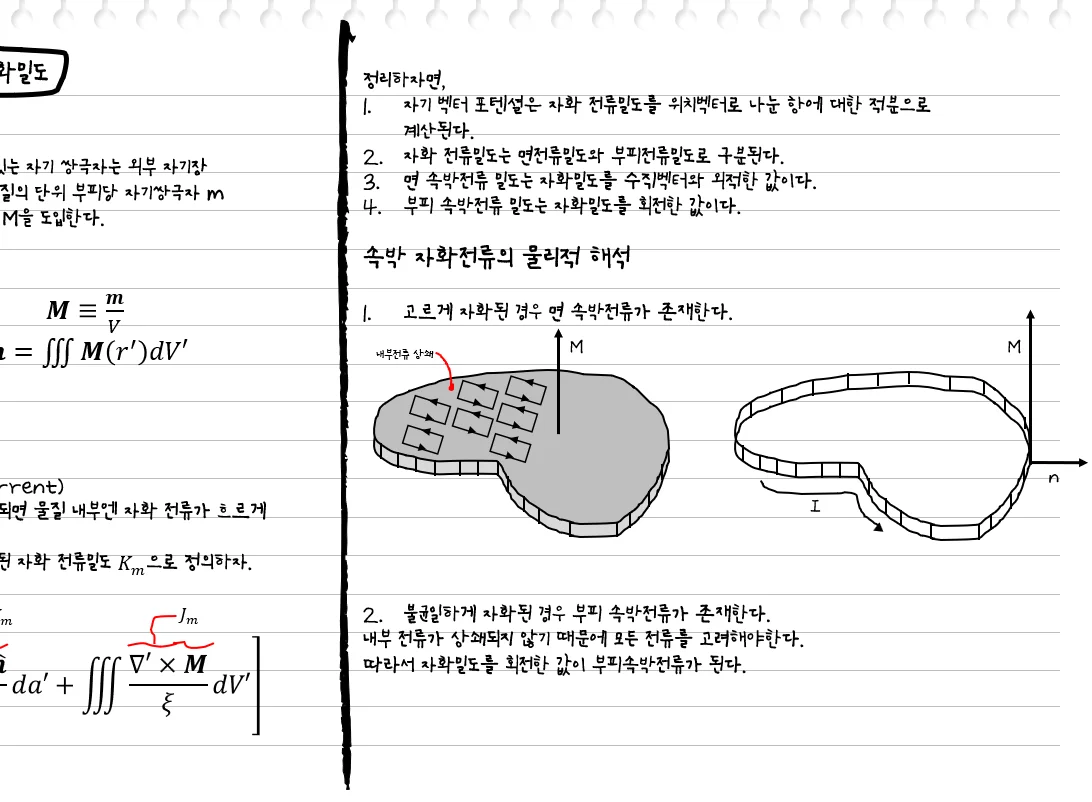 화밀도
있는 자기 쌍극자는 외부 자기장
질의 단위 부피당 자기쌍극자 m
M을 도입한다.
M ≡ m/V
= ∭ M(r′)dV′
rrent)
되면 물질 내부엔 자화 전류가 흐르게
된 자화 전류밀도 Kₘ으로 정의하자.
Jₘ
da′ + ∭ (∇′ × M)/ξ dV′]
정리하자면,
1. 자기 벡터 포텐셜은 자화 전류밀도를 위치벡터로 나눈 항에 대한 적분으로
계산된다.
2. 자화 전류밀도는 면전류밀도와 부피전류밀도로 구분된다.
3. 면 속박전류 밀도는 자화밀도를 수직벡터와 외적한 값이다.
4. 부피 속박전류 밀도는 자화밀도를 회전한 값이다.
속박 자화전류의 물리적 해석
1. 고르게 자화된 경우 면 속박전류가 존재한다.
내부전류 상쇄
M
M
n
I
2. 불균일하게 자화된 경우 부피 속박전류가 존재한다.
내부 전류가 상쇄되지 않기 때문에 모든 전류를 고려해야한다.
따라서 자화밀도를 회전한 값이 부피속박전류가 된다.